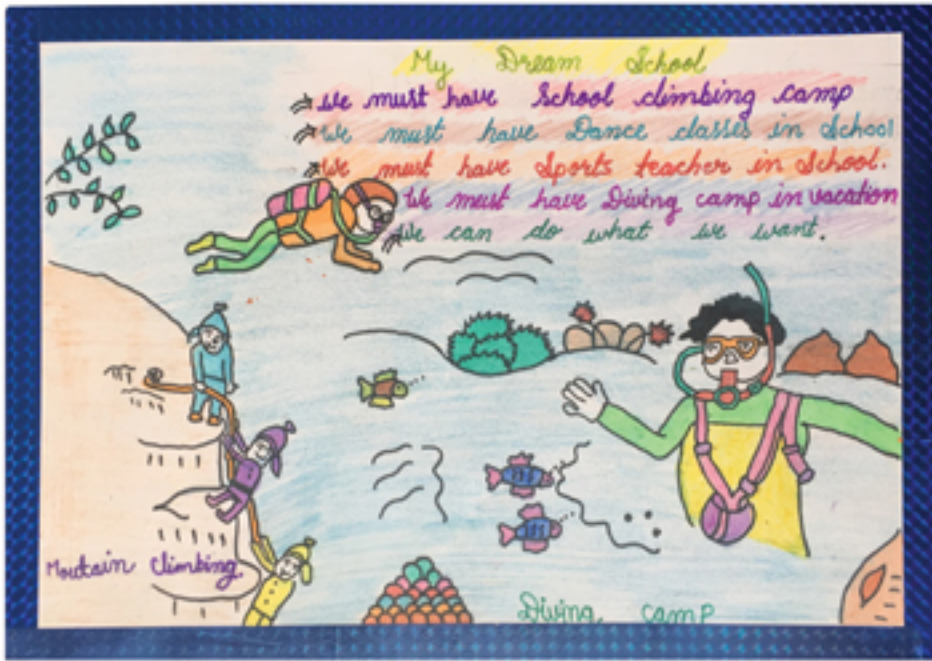 My Dream School
We must have School climbing camp
We must have Dance classes in School
We must have Sports teacher in School.
We must have Diving camp in vacation
We can do what we want.
Moutain Climbing
Diving camp